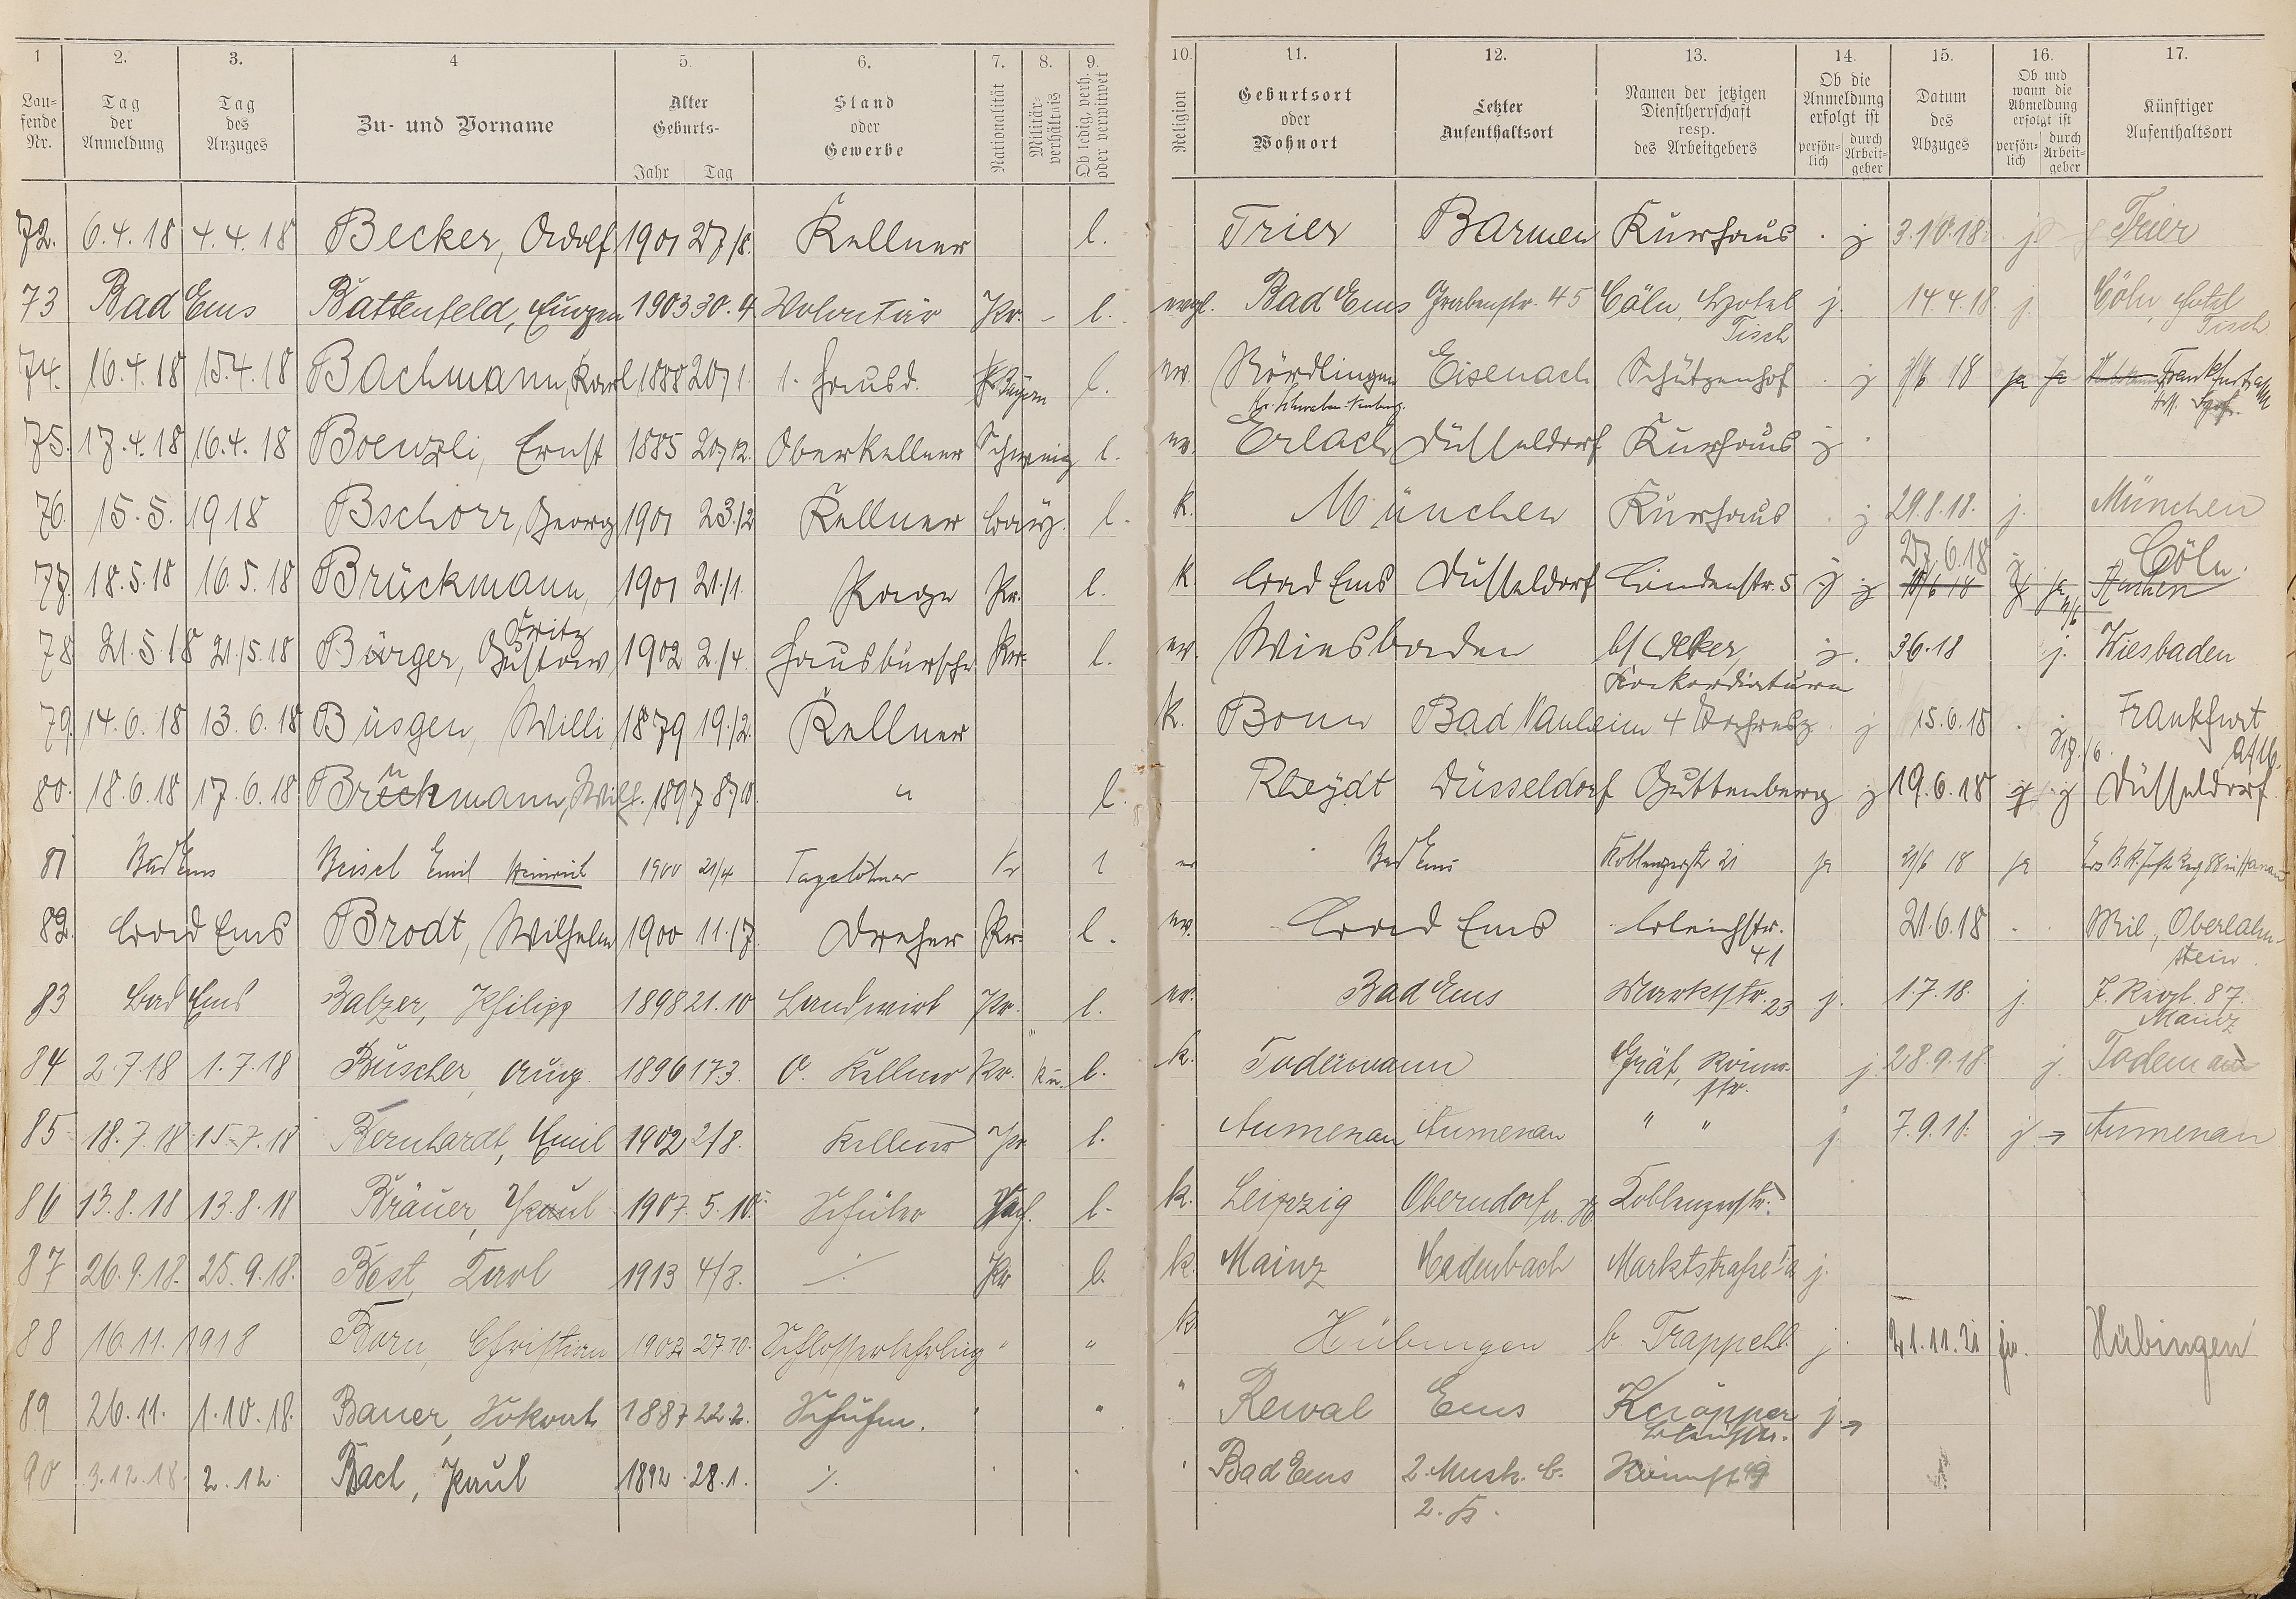 1 2. 3. 4 5. 6. 7. 8. 9. 10. 11. 12. 13. 14. 15. 16. 17.
Lau- fende Nr. Tag der Anmeldung Tag des Anzuges Zu- und Vorname Alter Geburts- Jahr Tag Stand oder Gewerbe Nationalität Militär- verhältnis Ob ledig, verh. oder verwitwet Religion Geburtsort oder Wohnort Letzter Aufenthaltsort Namen der jetzigen Dienstherrschaft resp. des Arbeitgebers Ob die Anmeldung erfolgt ist persön- lich durch Arbeit- geber Datum des Abzuges Ob und wann die Abmeldung erfolgt ist persön- lich durch Arbeit- geber Künftiger Aufenthaltsort
72. 6.4.18 4.4.18 Becker, Adolf 1901 27/8. Kellner l. Trier Barmen Kurhaus . j 3.10.18. j Trier
73 Bad Ems Battenfeld, Eugen 1903 30.4. Volontär Pr. - l. evgl. Bad Ems Grabenstr. 45 Cöln, Hotel j. 14.4.18. j. Cöln, Hotel
Tisch Tisch
74. 16.4.18 15.4.18 Bachmann, Karl 1888 20/1. 1. Hausd. Bayern l. ev. Nördlingen Eisenach Schützenhof . j 18 ja ja Frankfurt a/M
75. 17.4.18 16.4.18 Boenzli, Ernst 1885 20/12. Oberkellner Schweiz l. ev. Erlach Düsseldorf Kurhaus j
76. 15.5.1918 Bschorr, Georg 1901 23/12 Kellner bay. l. k. München Kurhaus . j 29.8.18. j. München
27.6.18 j. Cöln.
77. 18.5.18 16.5.18 Brückmann, 1901 21/1. Page Pr. l. k Bad Ems Düsseldorf Lindenstr. 5 j j 18 ja Aachen
Fritz
78 21.5.18 21/5.18 Bürger, Gustav 1902 2/4. Hausbursche Pr. l. ev. Wiesbaden b/ j. 3 6.18 j. Wiesbaden
Konkordiaturm
79. 14.6.18 13.6.18 Büsgen, Willi 1879 19/12. Kellner k. Bonn Bad Nauheim j 15.6.18 . j Frankfurt
a/M.
80. 18.6.18 17.6.18 Brückmann, Wilh. 1897 8/10. " l. Rheydt Düsseldorf Guttenberg j 19.6.18 j j Düsseldorf
81 Bad Ems Beisel Emil Heinrich 1900 21/4 Tagelöhner Pr l ev Bad Ems Koblenzerstr 21 ja 21/6 18 ja Ers. B. R. Inft. Reg 88 in Hanau
82. Bad Ems Brodt, Wilhelm 1900 11/7. Dreher Pr. l. ev. Bad Ems Bleichstr. 21.6.18 . . Mil., Oberlahn-
41 stein
83 Bad Ems Balzer, Philipp 1898 21.10 Landwirt Pr. l. ev. Bad Ems Marktstr. 23 j. 1.7.18. j. J. Regt. 87.
Mainz
84 2.7.18 1.7.18 Büscher, Aug. 1896 17.3. O. Kellner Pr. l. k. Todemann Gräf, Röm- j 28.9.18. j. Todemann
str.
85 18.7.18 15.7.18 Bernhardt, Emil 1902 2/8. Kellner Pr l. Aumenau Aumenau " " j. 7.9.18. j. Aumenau
86 13.8.18 13.8.18 Bräuer, Paul 1907. 5.10. Schüler Säch. l. k. Leipzig Oberndorf Koblenzerstr.
87 26.9.18. 25.9.18. Best, Karl 1913 4/3. ./. Pr l. k. Mainz Hadenbach Marktstraße j.
88 16.11.1918 Born, Christian 1902 27.10. Schlosserlehrling " " k. Hübingen b. Trappehl j. 21.11.21 ja. Hübingen
89 26.11. 1.10.18. Bauer, 1887 22.2. " " Rewal Ems Knöpper j.
Bleichstr.
90 3.12.18. 2.12. Bach, Paul 1892. 28.1. ./. Bad Ems 2. Musk. b.